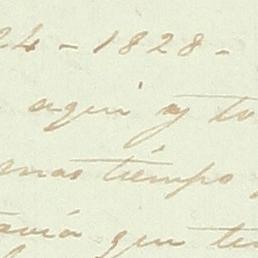 24 - 1828 -
aqui y to
mas tiempo
tavia que te